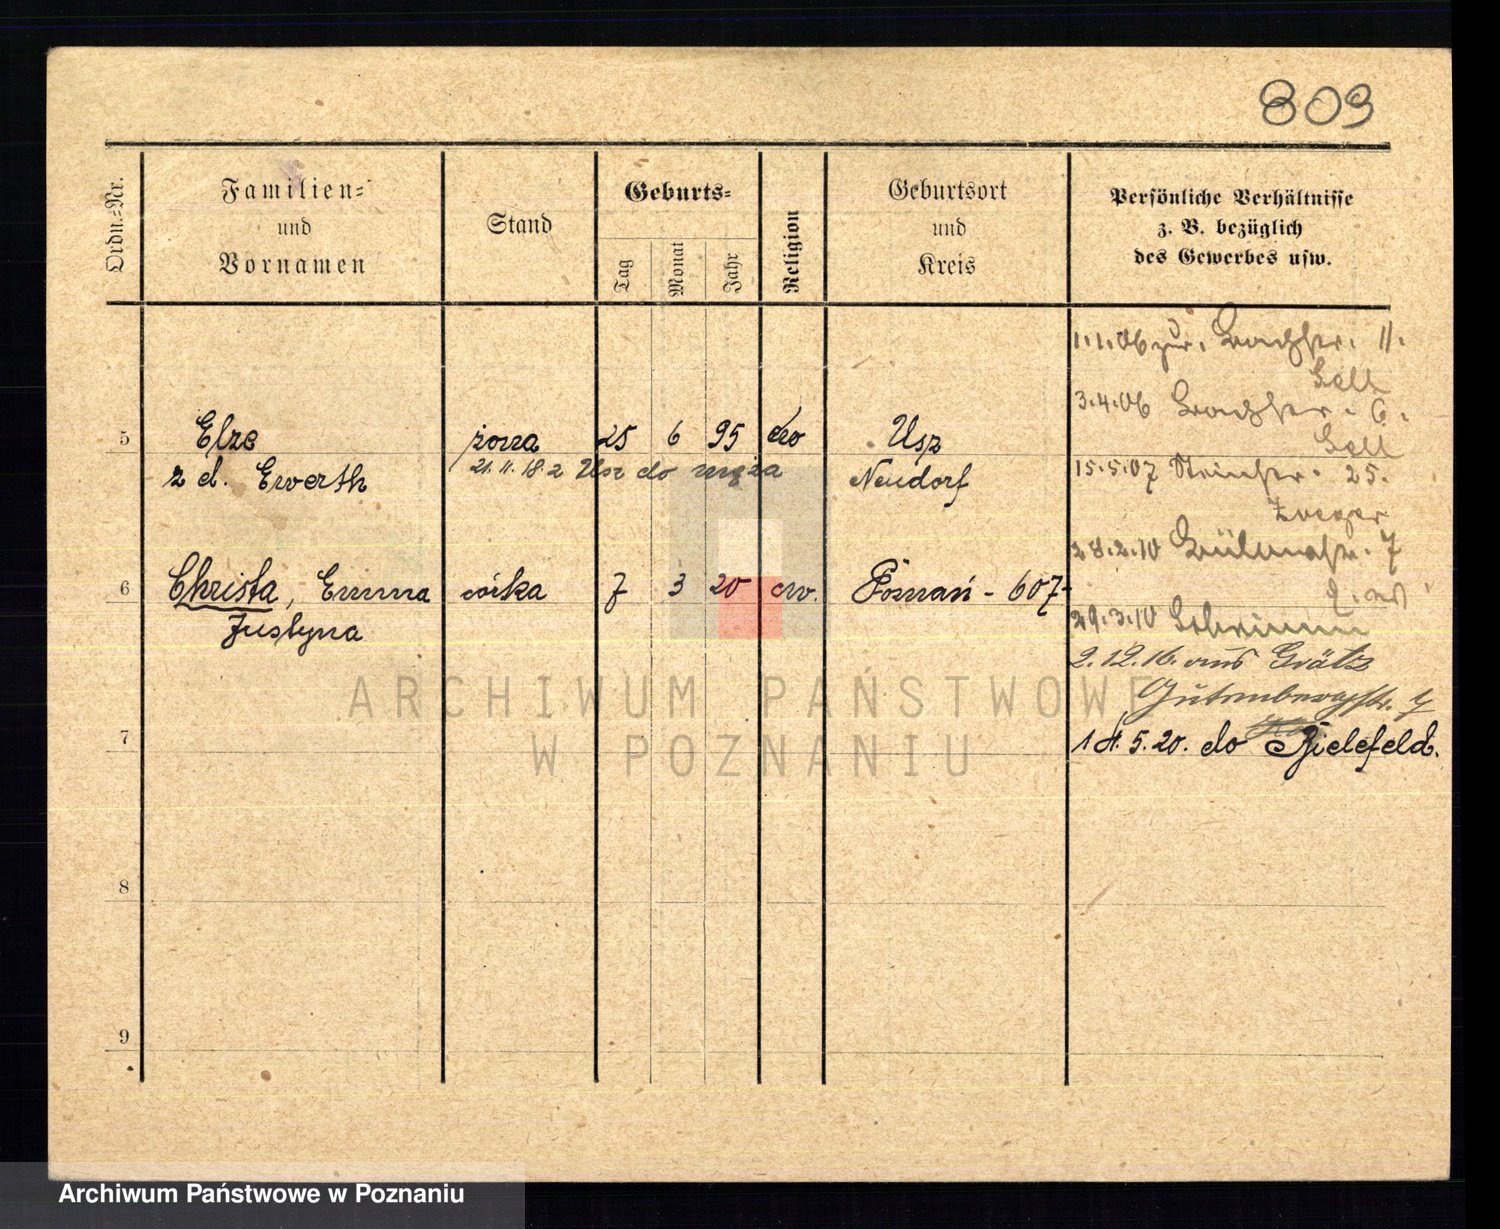 809
Ordn.=Nr.
Familien=
und
Vornamen
Stand
Geburts=
Tag
Monat
Jahr
Religion
Geburtsort
und
Kreis
Persönliche Verhältnisse
z. B. bezüglich
des Gewerbes usw.
1.1.06 zur. 11.
3.4.06 6.
15.5.07 25.
28.2.10 7
29.3.10 Schrimm
2.12.16. aus Grätz
Gutenbergstr.
5.20. do Bielefeld.
5
Elze żona 25 6 95 Usz
z d. Ewerth Neudorf
21.11.18. z Usz do męża
6
Christa, Emma córka 7 3 20 ew. Poznań - 607-
Justyna
7
8
9
ARCHIWUM PAŃSTWOWE
W POZNANIU
Archiwum Państwowe w Poznaniu